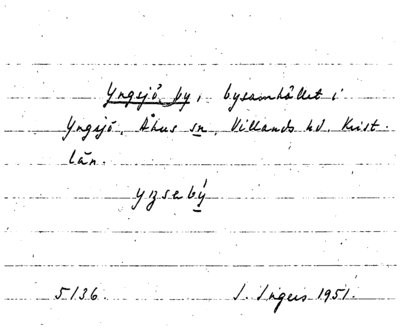 Yngsjö by, bysamhället i
Yngsjö, Åhus sn, Villands hd. Krist.
län.
yzsebý
5136. I. Ingers 1951.